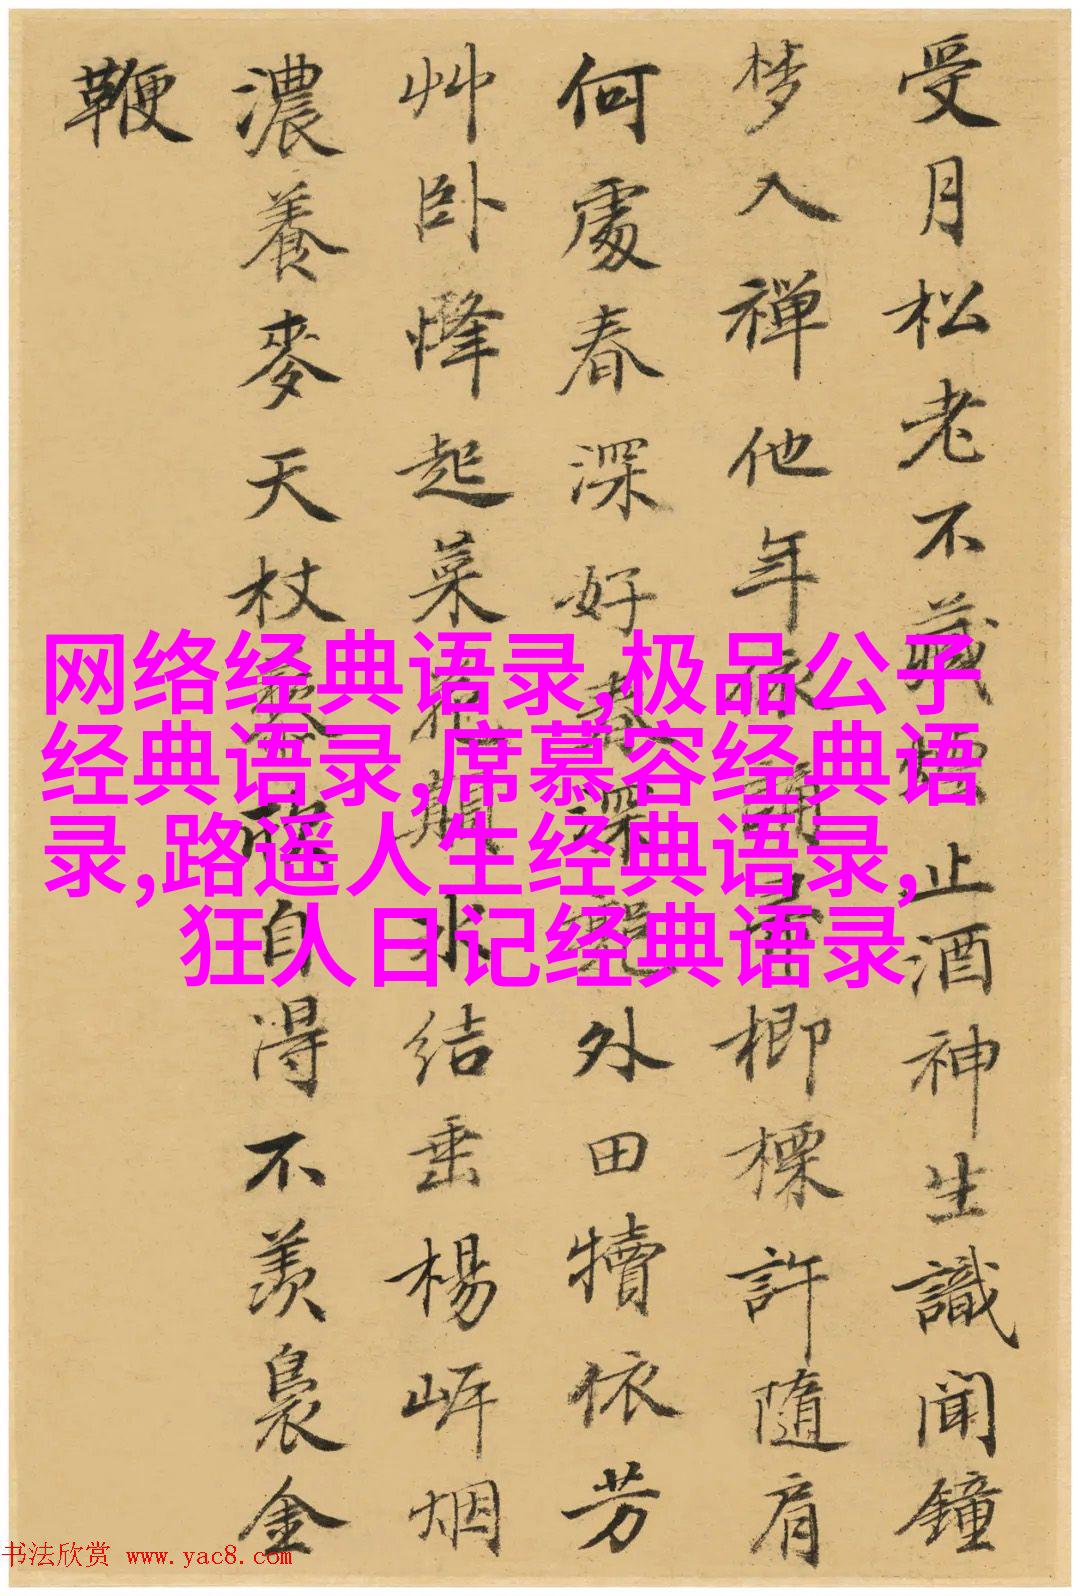 受月松老不藏煙止酒神生識聞鐘
梦入禅他年依誦帚楖標許隨肩
何處春深好春深郭外田犢依芳
艸卧燈起菜花飄水結垂楊岍烟
濃養麥天杖藜歌自得不羨裊金
鞭
网络经典语录,极品公子
经典语录,席慕容经典语
录,路遥人生经典语录,
狂人日记经典语录
书法欣赏 www.yac8.com